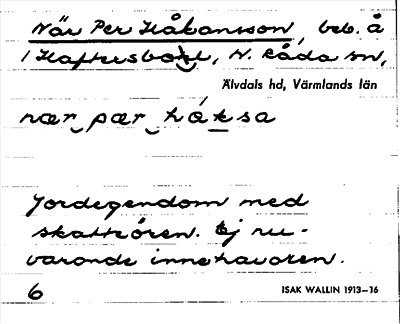 När Per Håkansson, beb. å
1 Haftersbol, N. Råda sn,
Älvdals hd, Värmlands län
nær pær håksa
Jordegendom med
skattören. Ej nu-
varande innehavaren.
6
ISAK WALLIN 1913–16